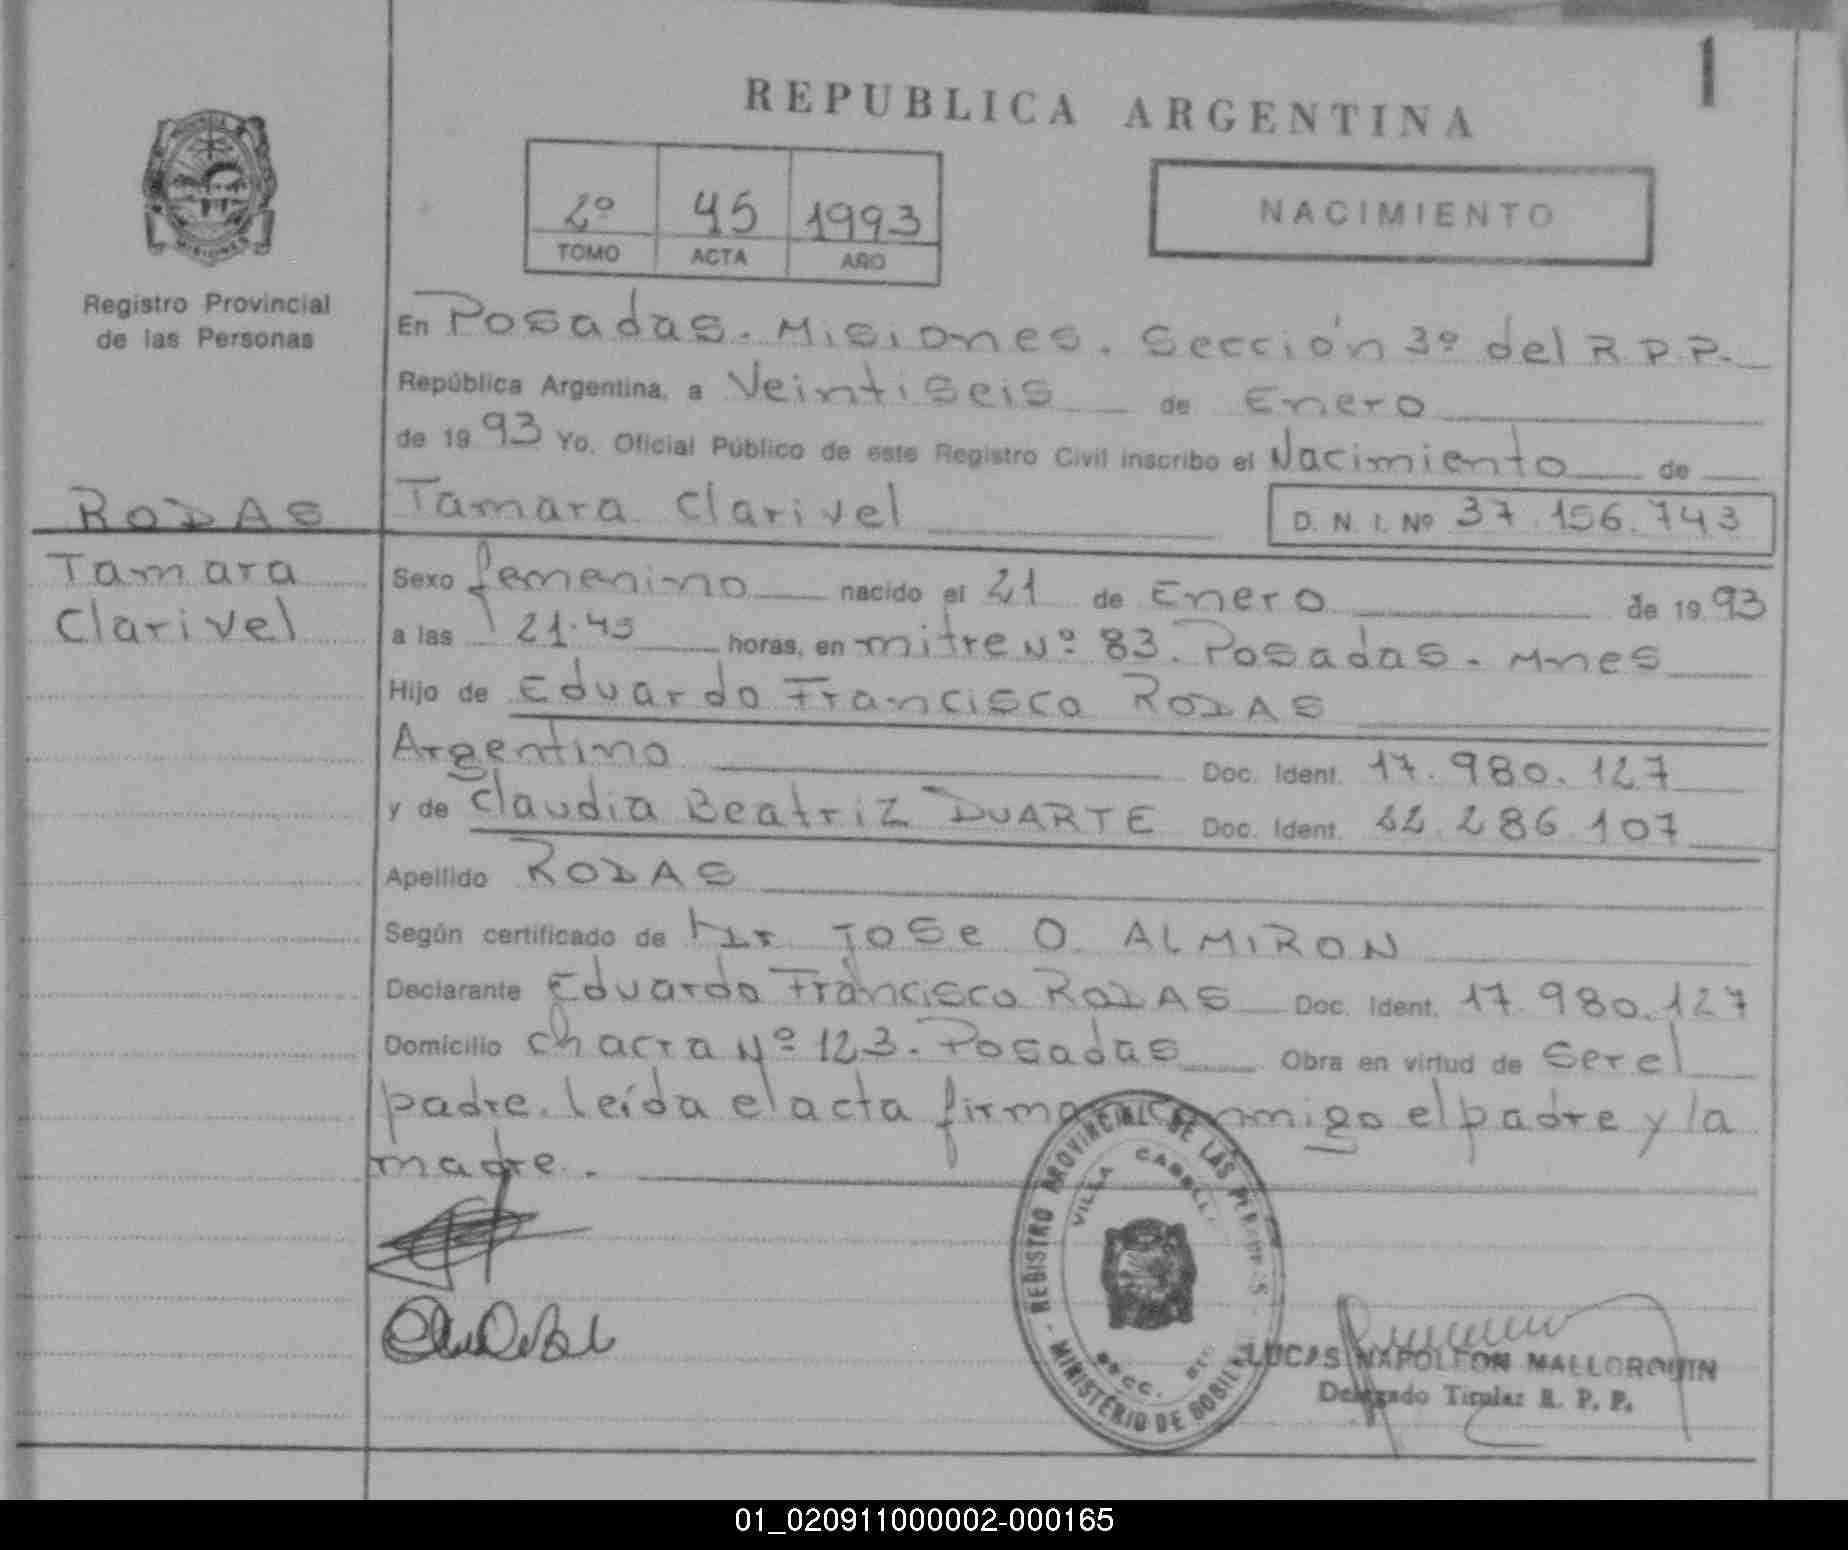 1
REPUBLICA ARGENTINA
2º 45 1993
TOMO ACTA AÑO
NACIMIENTO
MISIONES
Registro Provincial
de las Personas
En Posadas. Misiones. Sección 3º del R.P.P.
República Argentina, a Veintiseis de Enero
de 1993 Yo, Oficial Público de este Registro Civil inscribo el Nacimiento de
RODAS
Tamara Clarivel D. N. I. Nº 37.156.743
Tamara
Clarivel
Sexo femenino nacido el 21 de Enero de 1993
a las 21.45 horas, en mitre Nº 83. Posadas. Mnes
Hijo de Eduardo Francisco RODAS
Argentino Doc. Ident. 17.980.127
y de Claudia Beatriz DUARTE Doc. Ident. 22.286.107
Apellido RODAS
Según certificado de Dr JOSe O. ALMIRON
Declarante Eduardo Francisco RODAS Doc. Ident. 17.980.127
Domicilio Chacra Nº 123. Posadas Obra en virtud de ser el
padre. leída el acta firman conmigo el padre y la
madre.
REGISTRO PROVINCIAL DE LAS PERSONAS - MINISTERIO DE GOBIERNO
VILLA CABELL
SECC.
LUCAS NAPOLEON MALLORQUIN
Delegado Titular R. P. P.
01_020911000002-000165